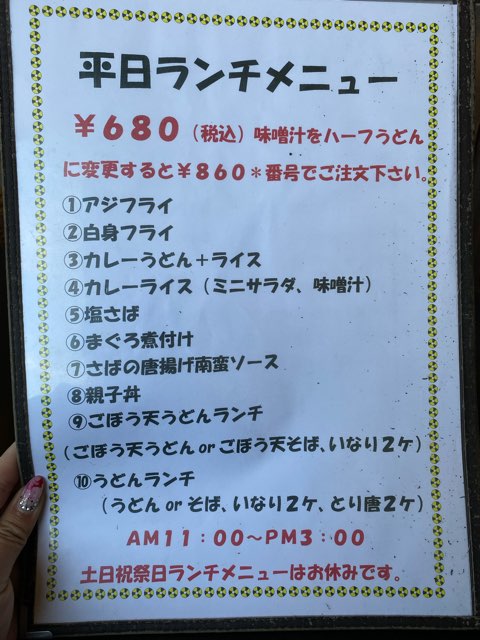 平日ランチメニュー
￥６８０（税込）味噌汁をハーフうどん
に変更すると￥８６０＊番号でご注文下さい。
①アジフライ
②白身フライ
③カレーうどん＋ライス
④カレーライス（ミニサラダ、味噌汁）
⑤塩さば
⑥まぐろ煮付け
⑦さばの唐揚げ南蛮ソース
⑧親子丼
⑨ごぼう天うどんランチ
（ごぼう天うどん or ごぼう天そば、いなり２ケ）
⑩うどんランチ
（うどん or そば、いなり２ケ、とり唐２ケ）
ＡＭ１１：００～ＰＭ３：００
土日祝祭日ランチメニューはお休みです。